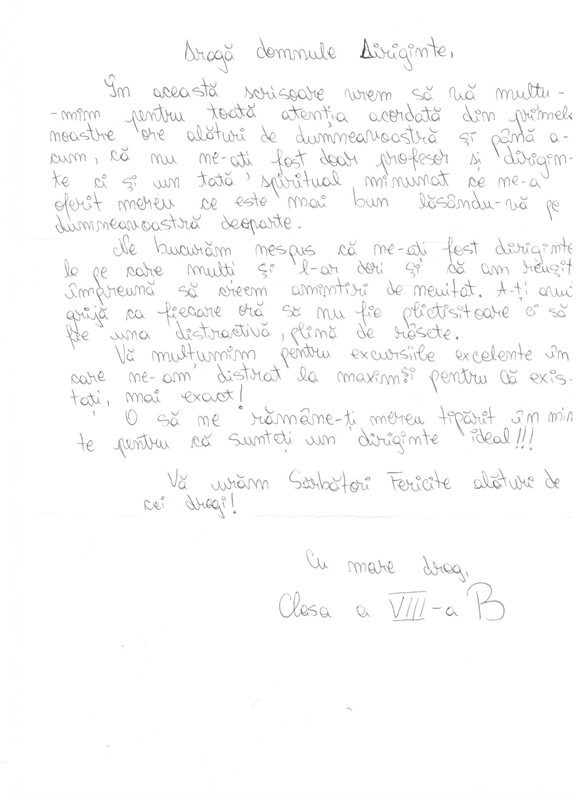 Dragă domnule Diriginte,
În această scrisoare vrem să vă mulțu-
-mim pentru toată atenția acordată din primele
noastre ore alături de dumneavoastră și până a-
cum, că nu ne-ati fost doar profesor si dirigin-
te ci și un tată spiritual minunat ce ne-a
oferit mereu ce este mai bun lăsându-vă pe
dumneavoastră deoparte.
Ne bucurăm nespus că ne-ati fost diriginte
le pe care multi și l-ar dori și că am reușit
împreună să creem amintiri de neuitat. A-ți avut
grijă ca fiecare oră să nu fie plictisitoare ci să
fie una distractivă, plină de râsete.
Vă mulțumim pentru excursiile excelente în
care ne-am distrat la maxim și pentru că exis-
tați, mai exact!
O să ne rămâne-ți mereu tipărit în min
te pentru că sunteți un diriginte ideal!!!
Vă urăm Sărbători Fericite alături de
cei dragi!
Cu mare drag,
Clasa a VIII-a B